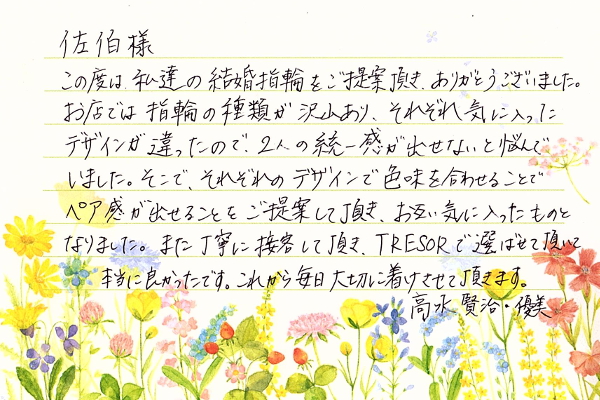 佐伯様
この度は、私達の結婚指輪をご提案頂き、ありがとうございました。
お店では指輪の種類が沢山あり、それぞれ気に入った
デザインが違ったので、2人の統一感が出せないと悩んで
いました。そこで、それぞれのデザインで色味を合わせることで
ペア感が出せることをご提案して頂き、お互い気に入ったものと
なりました。また丁寧に接客して頂き、TRESORで選ばせて頂いて
本当に良かったです。これから毎日大切に着けさせて頂きます。
高水 賢治・優美